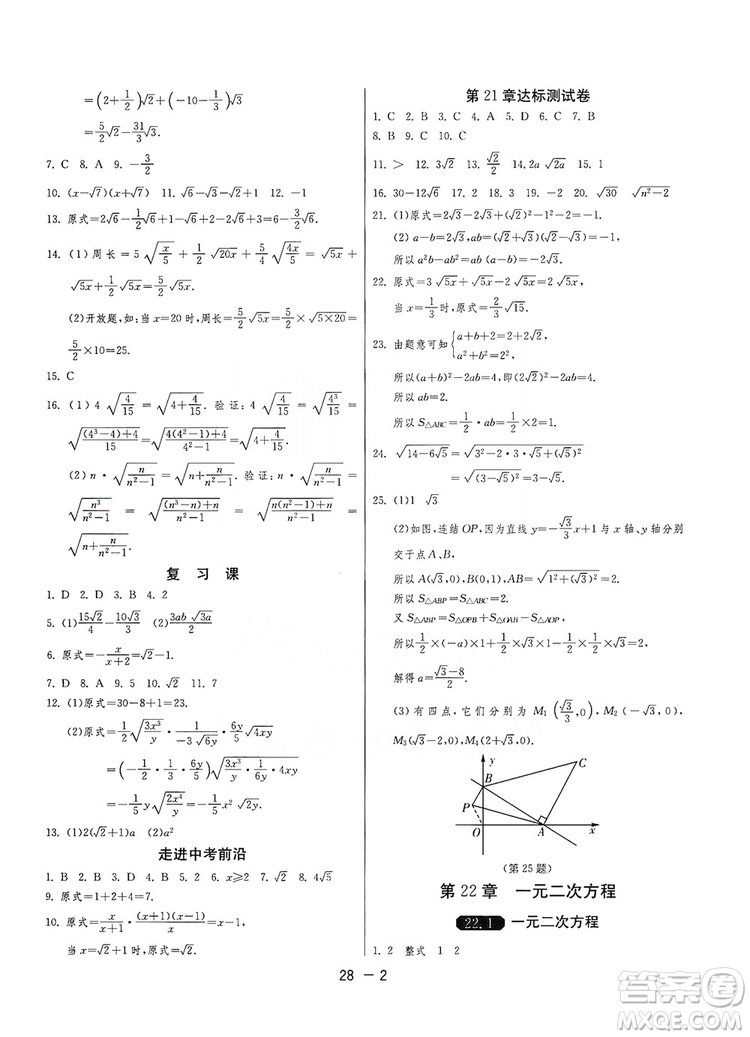 =(2+1/2)√2+(-10-1/3)√3
=5/2√2-31/3√3.
7. C 8. A 9. -3/2
10. (x-√7)(x+√7) 11. √6-√2+1 12. -1
13. 原式=2√6-√6+1-√6-2+3=0.
14. (1)周长=5√(x/5)+1/2√(20x)+5/4√(4x/5)=√(5x)+
√(5x)+1/2√(5x)=5/2√(5x).
(2)开放题,如:当x=20时,周长=5/2√(5x)=5/2×√(5×20)=
5/2×10=25.
15. C
16. (1)4√(4/15)=√(4+4/15). 验证:4√(4/15)=√(4³/15)=
√((4³-4)+4)/15)=√((4(4²-1)+4)/(4²-1))=√(4+4/15).
(2)n·√(n/(n²-1))=√(n+n/(n²-1)). 验证:n·√(n/(n²-1))=
√(n³/(n²-1))=√(((n³-n)+n)/(n²-1))=√((n(n²-1)+n)/(n²-1))=
√(n+n/(n²-1)).
复习课
1. D 2. C 3. B 4. 2
5. (1)15√2/4-10√3/3 (2)3ab√(3a)/2
6. 原式=-x/(x+2)=√2-1.
7. D 8. A 9. 5 10. √2 11. 7
12. (1)原式=30-8+1=23.
(2)原式=1/2√(3x³/y)·1/(-3√(6y))·6y/5√(4xy)
=(-1/2·1/3·6y/5)√(3x³/y·1/(6y)·4xy)
=-1/5y√(2x⁴/y)=-1/5x²√(2y).
13. (1)2(√2+1)a (2)a²
走进中考前沿
1. B 2. C 3. D 4. B 5. D 6. x≥2 7. √2 8. 4√5
9. 原式=1+2+4=7.
10. 原式=x/(x+1)·(x+1)(x-1)/x=x-1,
当x=√2+1时,原式=√2+1-1=√2.
第21章达标测试卷
1. C 2. B 3. C 4. A 5. D 6. C 7. B
8. B 9. B 10. C
11. > 12. 3√2 13. √2/2 14. 2a√(2a) 15. 1
16. 30-12√6 17. 2 18. 2 19. -2 20. √30 √(n²-2)
21. (1)原式=2√3-3√2+√2-1+2√2-2√3=-1.
(2)a-b=2√3,ab=(√3+1)(√3-1)=2.
所以a²b-ab²=ab(a-b)=2×2√3=4√3.
22. 原式=3√(5x)+√(5x)-2√(5x)=2√(5x).
当x=1/3时,原式=2/3√15.
23. 由题意可知{a+b+2=2+2√2,
a²+b²=2²=4.
所以(a+b)²-2ab=4,即(2√2)²-2ab=4.
所以ab=2.
所以S△ABC=1/2·ab=1/2×2=1.
24. √(14-6√5)=√(3²-2·3·√5+(√5)²)
=√((3-√5)²)=3-√5.
25. (1)1 √3
(2)如图,连结OP,因为直线y=-√3/3x+1与x轴、y轴分别
交于点A、B,
所以A(√3,0),B(0,1),AB=√(1²+(√3)²)=2.
所以S△ABP=S△ABC=2.
又S△ABP=S△OPB+S△OAB-S△AOP,
所以1/2×(-a)×1+1/2×√3×1-1/2×√3×1/2=2.
解得a=(√3-8)/2.
(3)有四点,它们分别为M₁(√3/3,0),M₂(√3+2,0),
M₃(√3-2,0),M₄(-√3,0).
y
C
B
P
O
A
x
(第25题)
第22章 一元二次方程
22.1 一元二次方程
1. 2 整式 1 2
28 - 2
答案圈
MXQE.COM